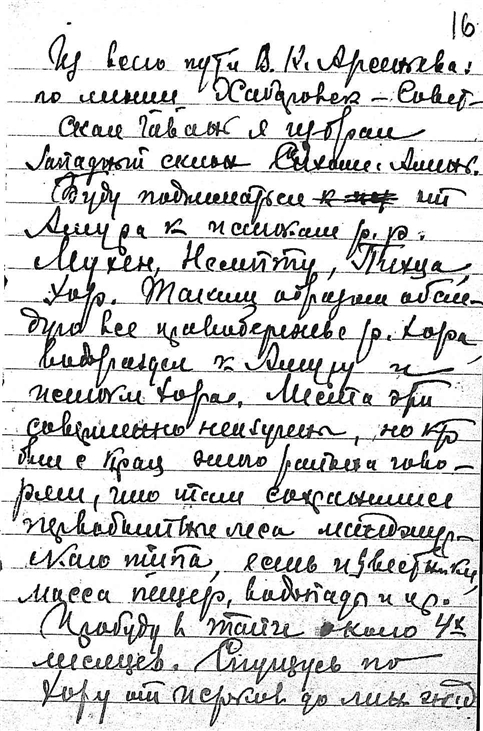 16
Из всего пути В. К. Арсеньева:
по линии Хабаровск – Совет-
ская Гавань я избрал
Западный склон Сихотэ-Алиня.
Буду подниматься к от
Амура к истокам р. р.
Мухен, Немпту, Пихца,
Хор. Таким образом обсле-
дую все правобережье р. Хора,
водораздел к Амуру и
истоки Хора. Места эти
совершенно неизучены, но кто
был с края этого района гово-
рят, что там сохранились
первобытные леса манчжур-
ского типа, есть известняки,
масса пещер, водопады и пр.
Пробуду в тайге около 4х
месяцев. Спущусь по
Хору от истоков до линии